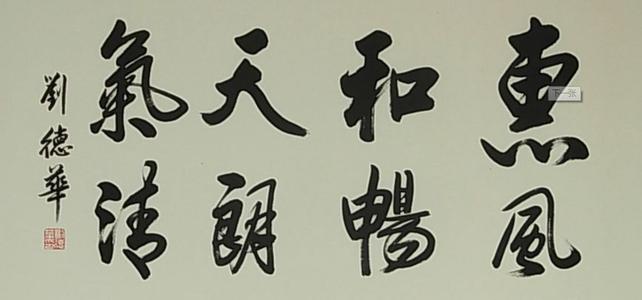 惠風
和暢
天朗
氣清
劉德華
下一张